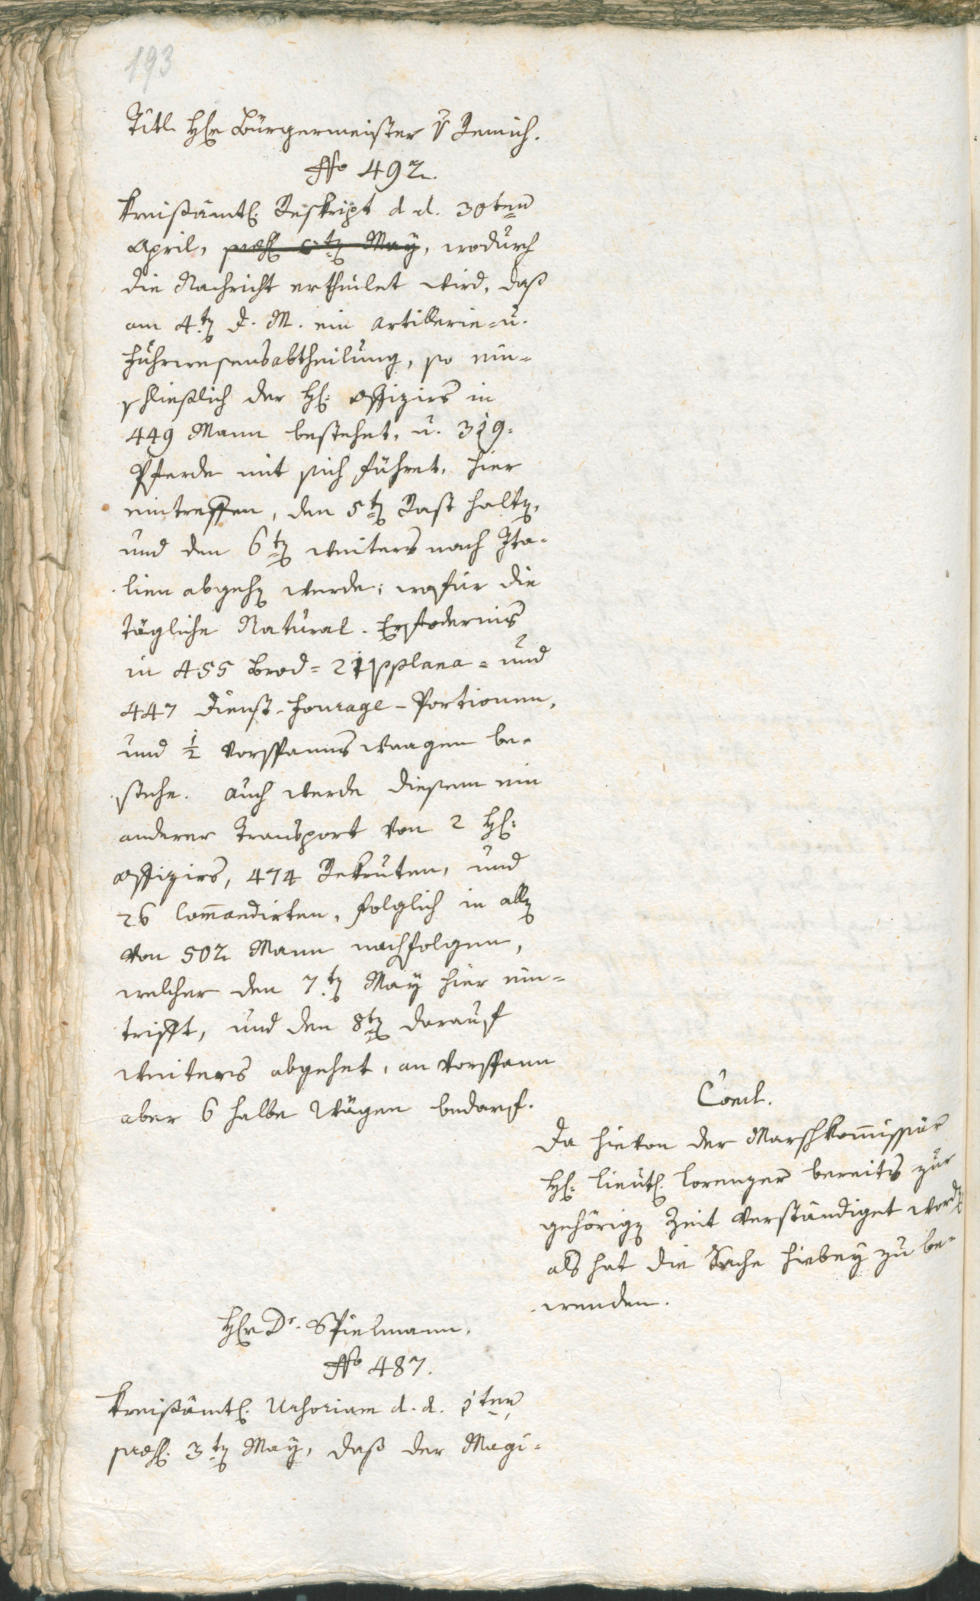 193
Titl. Hl. Bürgermeister v Remich.
No 492.
Kreißämtl. Reskript d. d. 30ten
April, præs. 6ten May, wodurch
die Nachricht ertheilet wird, daß
am 4ten d. M. ein Artillerie= u.
Fuhrwesensabtheilung, so ein=
schließlich der H: Offiziers in
449 Mann bestehet, u. 319.
Pferde mit sich führet, hier
eintreffen, den 5ten Rast halten,
und den 6ten weiters nach Ita=
lien abgehen werde; wofür die
tägliche Natural-Erfoderniß
in 455 Brod= und
447 Dienst-Fourage-Portionen,
und ½ Vorspannswaagen be=
stehe. Auch werde diesem ein
anderer Transport von 2 H:
Offiziers, 474 Rekruten, und
26 Commandirten, folglich in allen
von 502 Mann nachfolgen,
welcher den 7ten May hier ein=
trifft, und den 8ten darauf
weiters abgehet, an Vorspann
aber 6 halbe Wägen bedarf.
Concl.
Da hievon der Marschkommissär
H: Lieut. Lorenzer bereits zur
gehörigen Zeit verständiget worden
als hat die Sache hiebey zu be=
wenden.
Hl. Dr. Spielmann.
No 487.
Kreißämtl. d. d. 1ten
præs. 3ten May, daß der Magi=